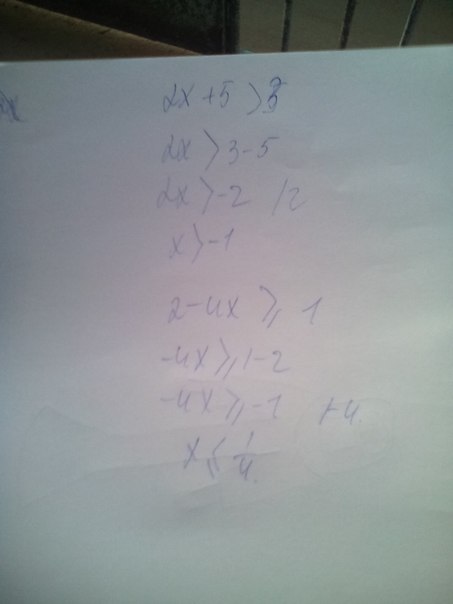 2x + 5 > 3
2x > 3 - 5
2x > -2 /2
x > -1
2 - 4x ⩾ 1
-4x ⩾ 1 - 2
-4x ⩾ -1 /-4.
x ⩽ 1/4.